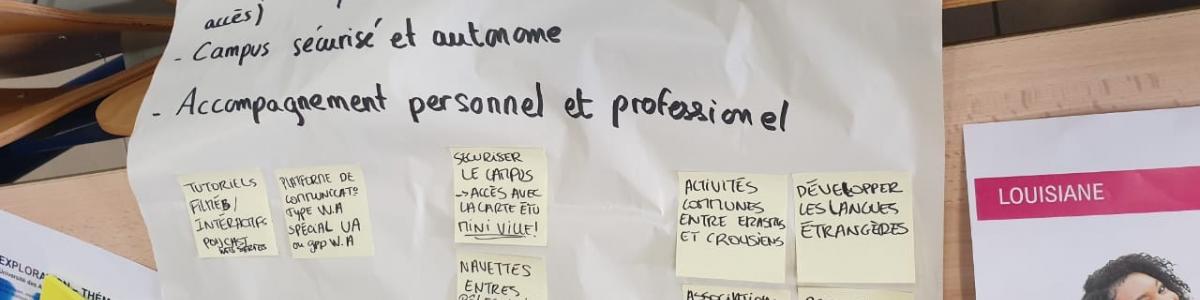 accès)
- Campus sécurisé et autonome
- Accompagnement personnel et professionel
TUTORIELS
FILMÉS/
INTERACTIFS
PODCAST
PLATEFORME DE
COMMUNICATº
TYPE W.A
SPÉCIAL UA
ou gpp W.A
SÉCURISER
LE CAMPUS
→ ACCÈS AVEC
LA CARTE ÉTU
MINI VILLE!
NAVETTES
ENTRES
ACTIVITÉS
COMMUNES
ENTRE ERASTUS
ET CROUSIENS
DÉVELOPPER
LES LANGUES
ÉTRANGÈRES
LOUISIANE